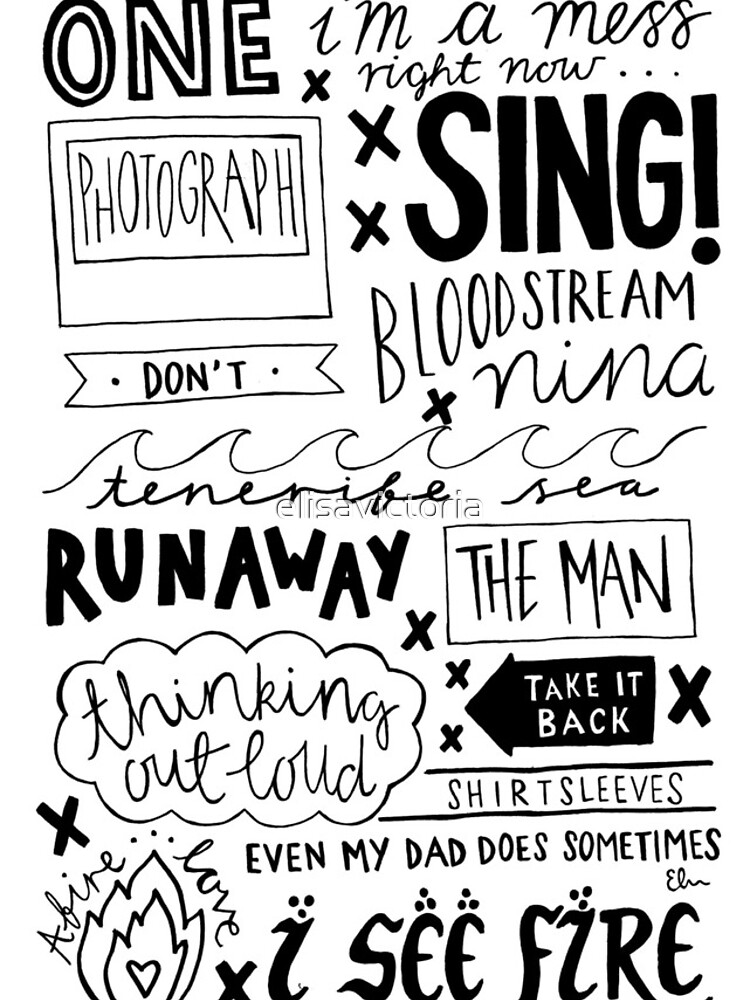 ONE
i'm a mess
right now...
PHOTOGRAPH
SING!
BLOODSTREAM
DON'T
nina
tenerife sea
elisavictoria
RUNAWAY
THE MAN
thinking
out loud
TAKE IT
BACK
SHIRTSLEEVES
EVEN MY DAD DOES SOMETIMES
Afire... love
i SEE FIRE